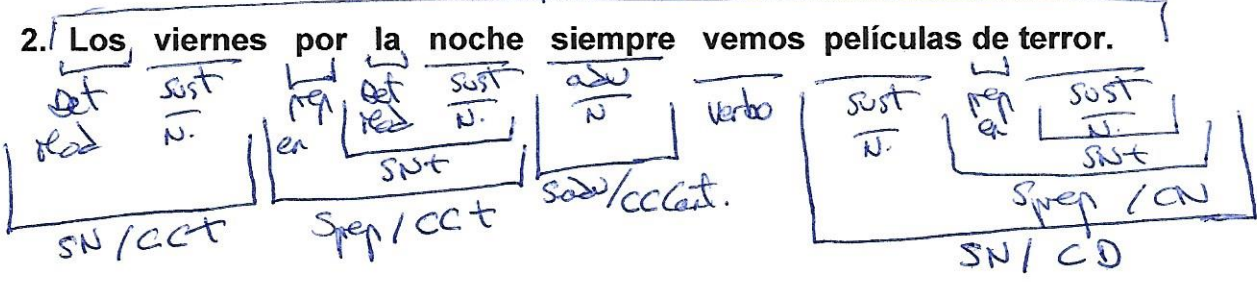 2. Los viernes por la noche siempre vemos películas de terror.
Det sust prep Det sust adv verbo sust prep sust
Mod N. en Mod N. N N. en N.
SNt SNt
SN/CCt Sprep/CCt Sadv/CCCant. Sprep/CN
SN/CD